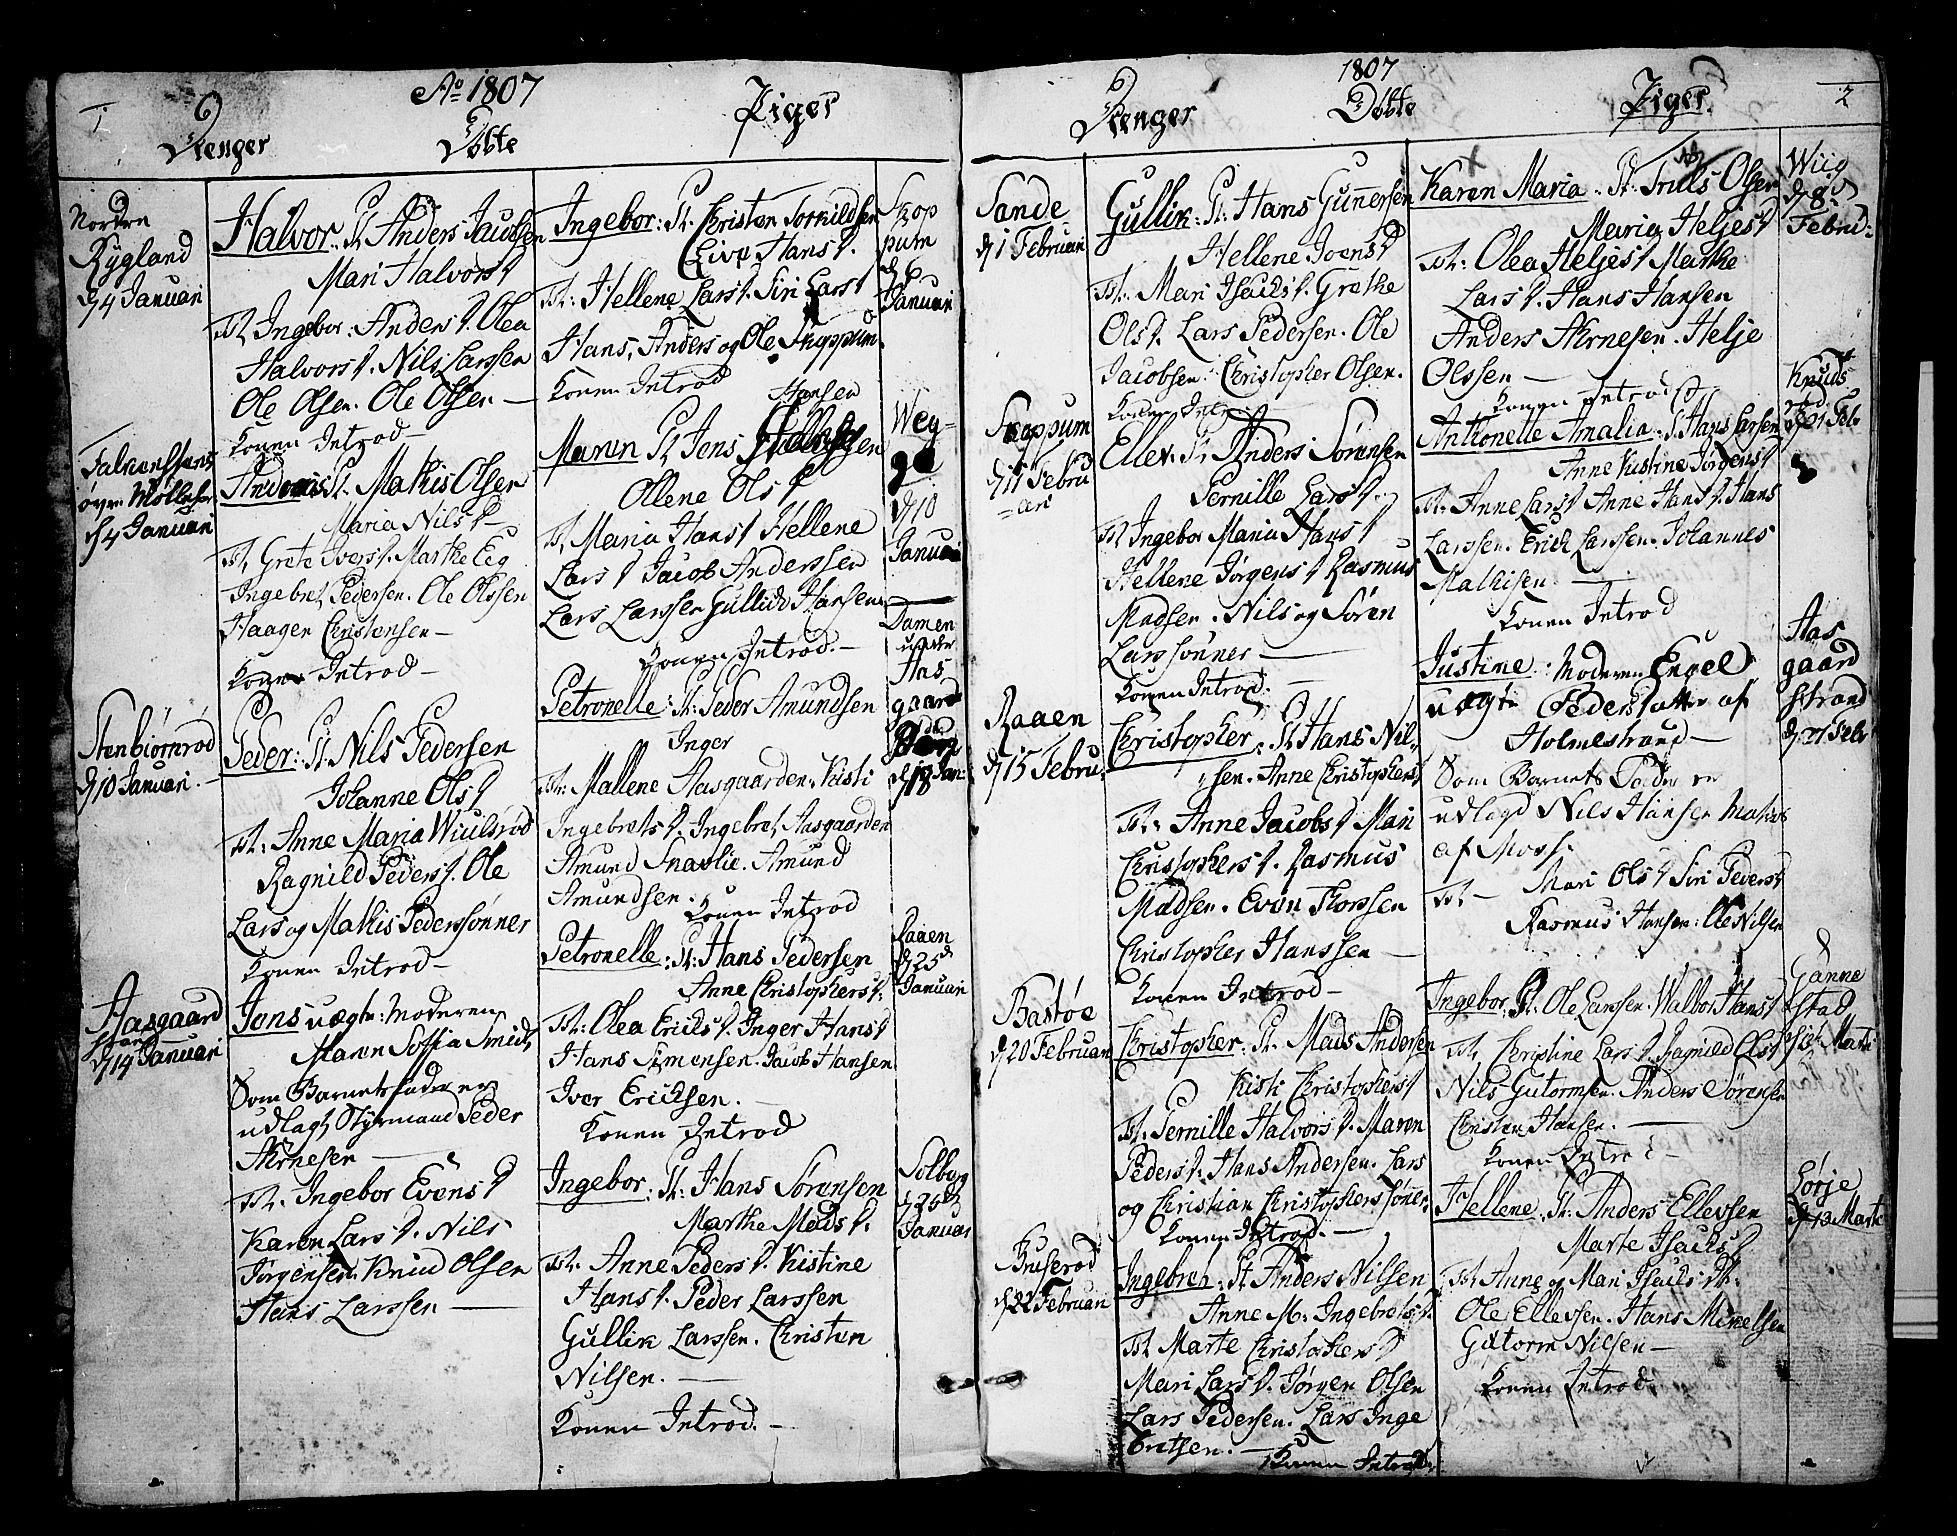 1
Ao 1807
Drenger
Döbte
Piger
Nordre
Rygland
d 4 Januari
Halvor: Pt Anders Jacobsen
Mari Halvorsd
Tst Ingebor: Andersd. Olea
Halvorsd. Nils Larssen
Ole Olsen. Ole Olsen —
konen Introd —
Falkenssens
øvre Mølle
d 4 Januari
Andreas Pt. Mathis Olsen
Maria Nilsd —
Tst. Grete Iversd. Marthe Eeg
Ingebret Pedersen. Ole Olssen
Haagen Christensen —
konen Introd —
Stenbiørnrød
d 10 Januari. -
Peder: Pt. Nils Pedersen
Johanne Olsd
Tst. Anne Maria Wiulsrød
Ragnild Pedersd. Ole
Lars og Mathis Pederssønner
konen Introd —
Aasgaard
strand
d 14 Januari
Jens uægte: Moderen
Maren Soffia Smidt
Som Barnets fader er
udlagt Styrmand Peder
Arnesen —
Tst. Ingebor Evensd
Karen Larsd. Nils
Jørgensen. Knud Olsen
Hans Larssen —
Ingebor: Pt. Christen Torkildsen
Live Hansd.
Tst: Hellene Larsd. Siri Larsd
Hans, Anders og Ole Skoppum
konen Introd
Skop
pum
d 6
Januari
Hansen
Maren Pt Jens
Ollene Olsd
Tst Maria Hansd Hellene
Larsd Jacob Anderssen
Lars Larssen Gullich Hansen
konen Introd. —
Weg-
ge
d 10
Januari
Petronelle: Pt: Peder Amundsen
Inger
Tst: Mallene Aasgaarden. Kisti
Ingebretsd. Ingebret Aasgaarden
Amund Snarlie. Amund
Amundsen.
konen Introd
Damen
under
Aas
gaard
d 18 Jan:
Petronelle: Pt: Hans Pedersen
Anne Christophersd:
Tst: Olea Ericksd. Inger Hansd
Hans Simensen. Jacob Hansen
Iver Ericksen. —
konen Introd
Raaen
d 25d
Januari
Ingebor: Pt: Hans Sørensen
Marthe Madsd.
Tst. Anne Pedersd. Kistine
Hansd. Peder Larssen
Gullik Larssen. Christen
Nilsen. —
konen Introd. —
Solberg
d 25d
Januari
1807
Drenger
Döbte
Piger
2
Sande
d 1 Februari
Gullik: Pt: Hans Gunnersen
Hellene Joensd
Tst. Mari Isachsd. Grethe
Olsd. Lars Pedersen. Ole
Jacobsen. Christopher Olsen.
konen Intr
Skoppum
d 11 Febru
= ari
Ellev. Pt Anders Sørensen
Pernille Larsd.
Tst Ingebor Maria Hansd
Hellene Jørgensd Rasmus
Madsen. Nils og Søren
Larssønner —
konen Introd. —
Raaen
d 15 Febru:
Christopher. Pt Hans Nil-
sen. Anne Christophersd
Tst: Anne Jacobsd Mari
Christophersd. Rasmus
Madsen. Even Thorssen
Christopher Hanssen —
konen Introd —
Bastøe
d 20 Februari
Christopher: Pt. Mads Andersen
Kisti Christophersd
Tst. Pernille Halvorsd. Maren
Pedersd. Hans Andersen. Lars
og Christian Christopherssønner
konen Introd. —
Bruserød
d 22 Februari
Ingebret: Pt Anders Nilsen
Anne M. Ingebretsd.
Tst Marte Christophersd
Mari Larsd. Jørgen Olsen
Lars Pedersen. Lars Inge
bretsen. —
konen Introd
Karen Maria. Pt. Truls Olsen
Maria Heljesd
Tst: Olea Heljesd Marthe
Larsd. Hans Hansen
Anders Arnesen. Helje
Olssen —
konen introd
Wiig
d 8d
Febru:
Anthonelle Amalia. Pt Hans Larsen
Anne Kistine Jørgensd
Tst. Anne Larsd Anne Hansd. Hans
Larssen. Erich Larssen. Johannes
Mathisen —
konen Introd
Knuds
rød
d 21 Feb
Justine: Moderen Engel
uægte Pedersdatter af
Holmestrand —
Som Barnets Fader er
udlagd Nils Hansen Matros
af Moss.
Tst — Mari Olsd Siri Pedersd
Rasmus Hansen: Ole Nilsen
Aas
gaard
strand
d 27 Febr
Ingebor: Pt: Ole Larssen. Walbor Hansd
Tst, Christine Larsd. Ragnild Olsd
Nils Gutormsen. Anders Sørensen
Christen Hansen. —
konen Introd —
Ganne
stad
Marti
Hellene. Pt: Anders Ellevsen
Marte Isachsd
Tst. Anne og Mari Isachs Dt.
Ole Ellevsen. Hans Mikkelsen
Gutorm Nilsen —
konen Introd.
Lørje
d 13 Marti